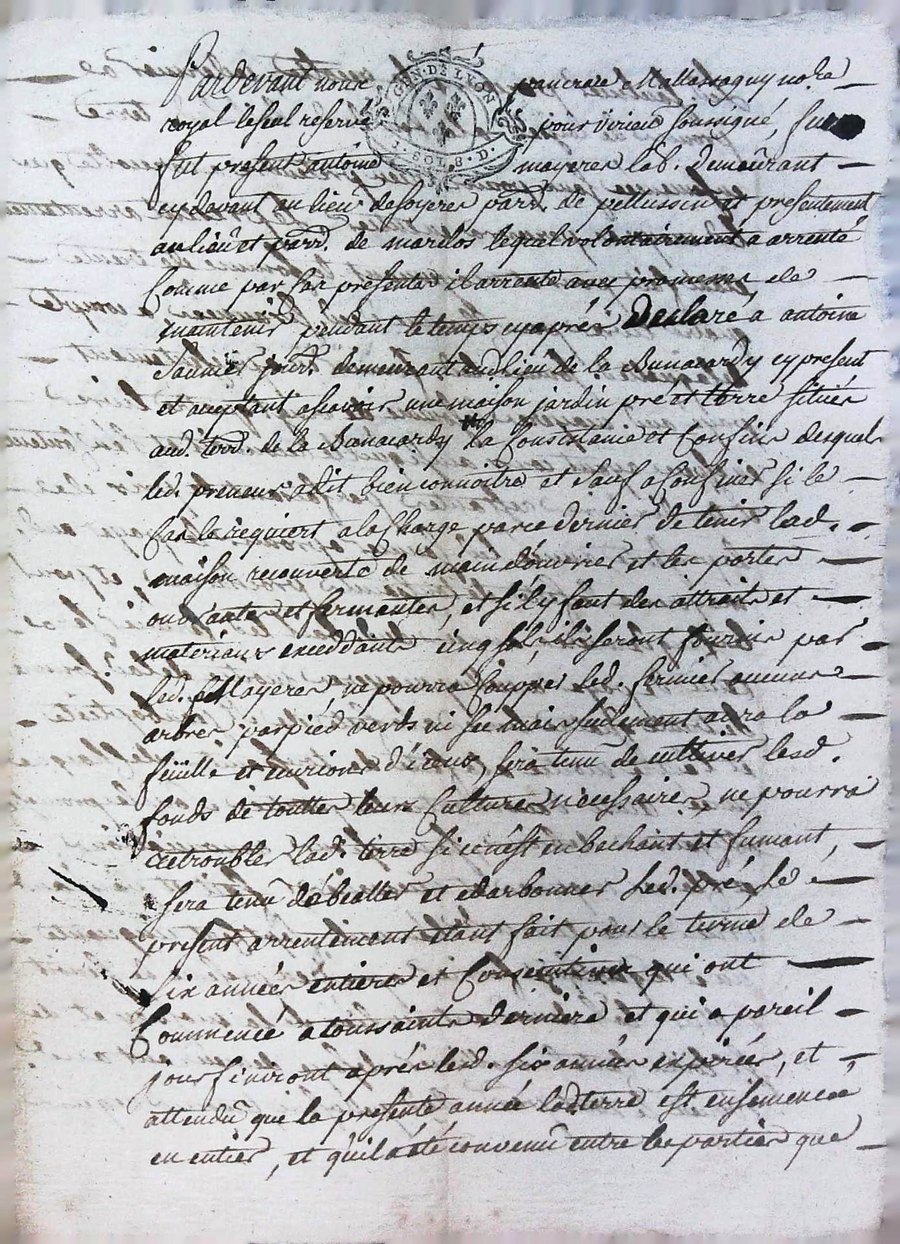 Pardevant nous pancrace Mallassagny no.re
GEN. DE LYON
1. SOL 8. D.
royal le seul reservé pour virieu soussigné, fut
fut present antoine mayere lab. demeurant
cy devant au lieu de soyere parr. de pellussin et presentement
au lieu et parr. de marlos lequel volontairement a arrenté
Comme par ses presentes il arrente avec promesse de
maintenir pendant le temps cy aprés Declaré, a antoine
Saunier jour. demeurant au lieu de la Bunacardy cy present
et acceptant a scavoir une maison jardin pré et terre situés
aud. terr. de la Bunacardy la Consistanie et Confins desquels
led. preneur a dit bien connoitre et sauf a Confiner si le
Cas le requiert a la Charge par ce dernier de tenir lad.
maison recouverte de main d'ouvrier et les portes
ouvrantes et fermantes, et s'il y faut des attraits et
materiaux exceddants cinq sols, ils seront fournis par
led. Mayere ne pourra Coupper led. fermier aucuns
arbres par pied verts ni secs mais seulement aura la
feüille et emions d'iceux, sera tenu de cultiver lesd.
fonds de touttes leurs Cultures necessaires, ne pourra
retroubler lad. terre si ce n'est en bechant et fumant,
sera tenu d'ébealler et edarbonner led. pré, le
present arrentement etant fait pour le terme de
Six années entieres et Consecutives qui ont
Commencé a toussaints derniere et qui a pareil
jour finiront aprés lesd. six années expirées, et
attendu que la presente année lad. terre est ensemencée
en entier, et qu'il a été convenu entre les parties que